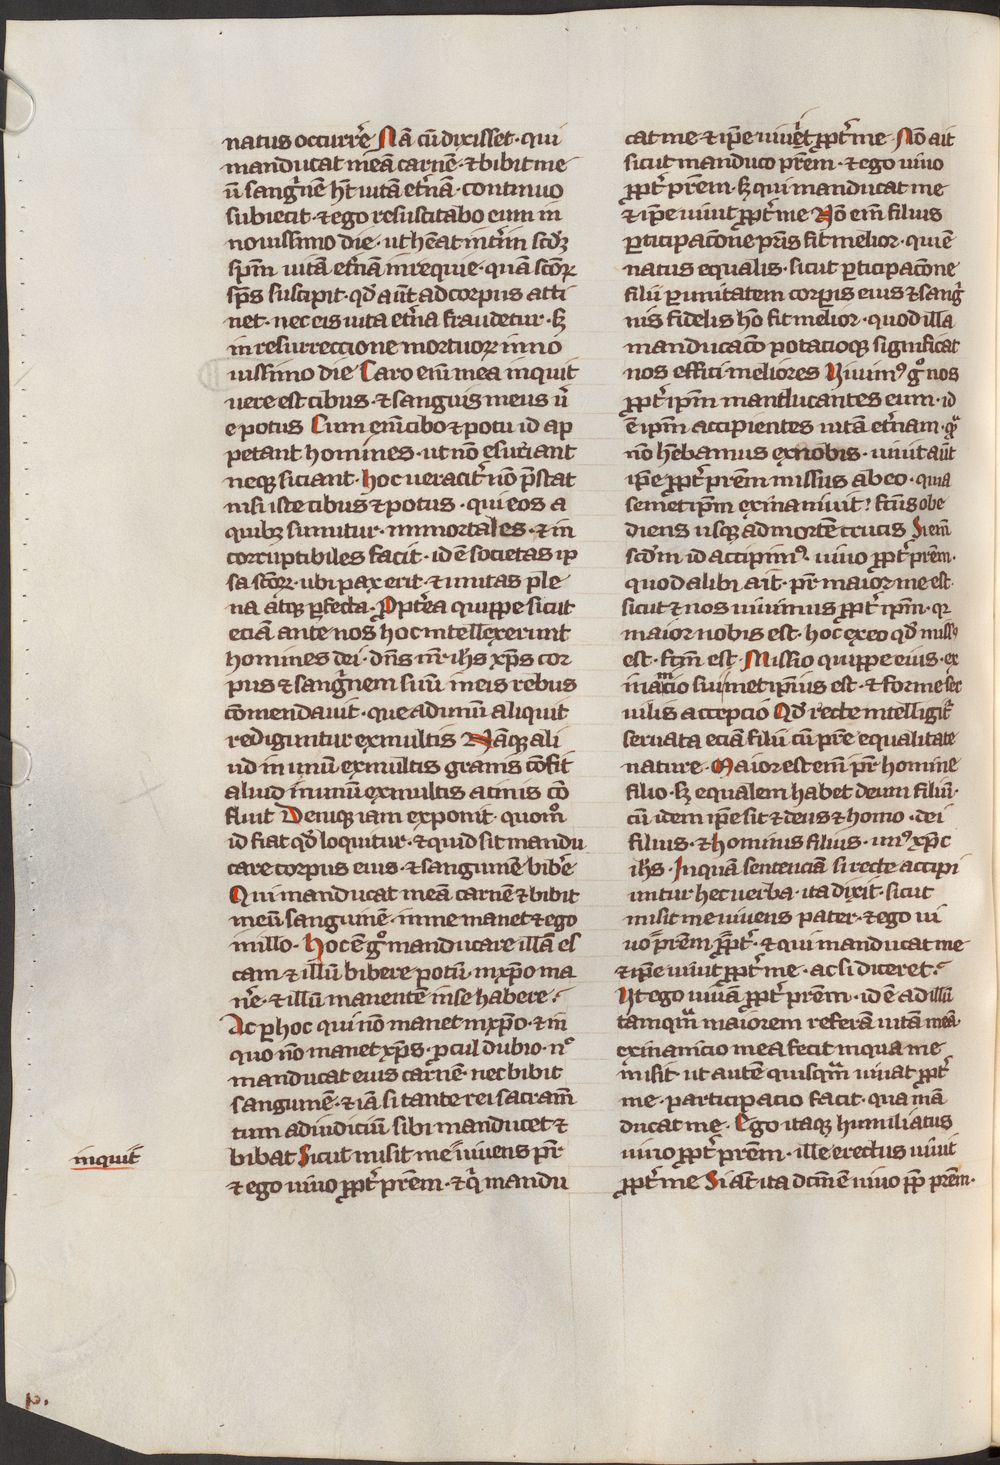 natus occurrẽ Nã cũ dixisset · qui
manducat meã carnẽ · ⁊ bibit me
ũ sanguinẽ h̃t uitã et̃nã · continuo
subiecit · ⁊ ego resuscitabo eum in
nouissimo die · ut hẽat int̃im scdꝫ
sp̃m uitã et̃nã in requie · quã scõꝝ
sp̃s suscipit · qd̃ aũt ad corpus atti
net · nec eis uita et̃na fraudetur · sꝫ
in resurreccione mortuoꝝ in no
uissimo die Caro em̃ mea inquit
uere est cibus · ⁊ sanguis meus ũ
e potus Cum em̃ cibo ⁊ potu id ap
petant homines · ut nõ esuriant
neqꝫ siciant · hoc ueracit̃ nõ p̃stat
nisi iste cibus ⁊ potus · qui eos a
quibꝫ sumitur · inmortales · ⁊ in
corruptibiles facit · id ẽ societas ip
sa scõꝝ · ubi pax erit · ⁊ unitas ple
na atqꝫ ꝑfecta · Ꝓpt̃ea quippe sicut
eciã ante nos hoc intellexerunt
homines dei · dñs nr̃ ih̃s xp̃s cor
pus ⁊ sanguinem suũ in eis rebus
cõmendauit · que ad unũ aliquit
rediguntur ex multis Nãqꝫ ali
ud in unũ ex multis granis cõfit
aliud in unũ ex multis acinis cõ
fluit Deniqꝫ iam exponit · quom̊
id fiat qd̃ loquitur · ⁊ quid sit mandu
care corpus eius · ⁊ sanguinẽ bibẽ
Qui manducat meã carnẽ ⁊ bibit
meũ sanguinẽ · in me manet ⁊ ego
in illo · Hoc ẽ g̊ manducare illã es
cam · ⁊ illũ bibere potũ · in xp̃o ma
nẽ · ⁊ illũ manentẽ in se habere ·
Ac ꝑ hoc qui nõ manet in xp̃o · ⁊ in
quo nõ manet xp̃s · ꝓcul dubio · n̊
manducat eius carnẽ · nec bibit
sanguinẽ · ⁊ iã si tante rei sacram̃
tum ad iudiciũ sibi manducet ⁊
bibat Sicut misit me uiuens pr̃
⁊ ego uiuo ꝓpt̃ pr̃em · ⁊ q̃ mandu
inquit
cat me ⁊ ip̃e uiuet ꝓpt̃ me · Nõ ait
sicut manduco pr̃em · ⁊ ego uiuo
ꝓpt̃ pr̃em · sꝫ qui manducat me
⁊ ip̃e uiuit ꝓpt̃ me Nõ em̃ filius
ꝑticipacõne pr̃is fit melior · qui ẽ
natus equalis · sicut ꝑticipacõne
filii ꝑ unitatem corꝑis eius ⁊ sang̃
nis fidelis hõ fit melior · quod illa
manducacõ potacioqꝫ significat
nos effici meliores Uiuimꝰ g̊ nos
ꝓpt̃ ip̃m manducantes eum · id
ẽ ip̃m accipientes uitã et̃nam · q̃
nõ hẽbamus ex nobis · uiuit aũt
ip̃e ꝓpt̃ pr̃em missus ab eo · quia
semetip̃m exinaniuit · fc̃us obe
diens usqꝫ ad mortẽ crucis Si em̃
scd̃m id accipimꝰ · uiuo ꝓpt̃ pr̃em ·
quod alibi ait · pr̃ maior me est ·
sicut ⁊ nos uiuimus ꝓpt̃ ip̃m · qꝛ
maior nobis est · hoc ex eo qd̃ missꝰ
est · fc̃m est · Missio quippe eius · ex
inanicio sui metipsius est · ⁊ forme ser
uilis accepcio Qd̃ recte intelligit̃
seruata eciã filii cũ pr̃e equalitate
nature · Maior est em̃ pr̃ homine
filio · sꝫ equalem habet deum filiũ ·
cũ idem ip̃e sit ⁊ deus ⁊ homo · dei
filius · ⁊ hominis filius · unꝰ xp̃c
ih̃s · In quã sentenciã si recte accipi
untur hec uerba · ita dixit · sicut
misit me uiuens pater · ⁊ ego ui
uo pr̃em ꝓpt̃ · ⁊ qui manducat me
⁊ ip̃e uiuit ꝓpt̃ me · ac si diceret ·
Ut ego uiuã ꝓpt̃ pr̃em · id ẽ ad illũ
tamqã maiorem referã uitã meã ·
exinanicio mea fecit in qua me
misit · ut autẽ quisqã uiuat ꝓpt̃
me · participacio facit · qua mã
ducat me · Ego itaqꝫ humiliatus
uiuo ꝓpt̃ pr̃em · ille erectus uiuit
ꝓpt̃ me Si aũt ita dc̃m ẽ uiuo ꝓp̃ pr̃em ·